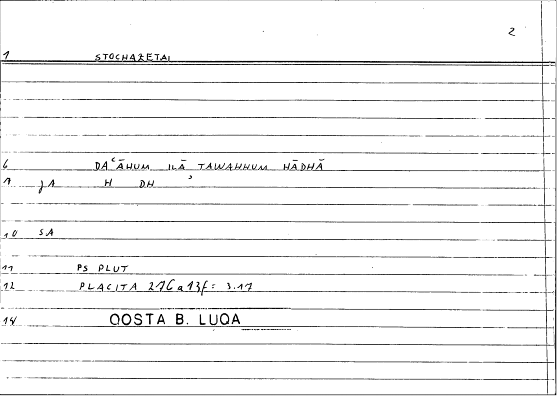 2
1 STOCHAZETAI
6 DAʿĀHUM ILĀ TAWAHHUM HĀDHĀ
7 JA H DH ʾ
10 SA
11 PS PLUT
12 PLACITA 276a13f = 3.11
14 QOSTA B. LUQA